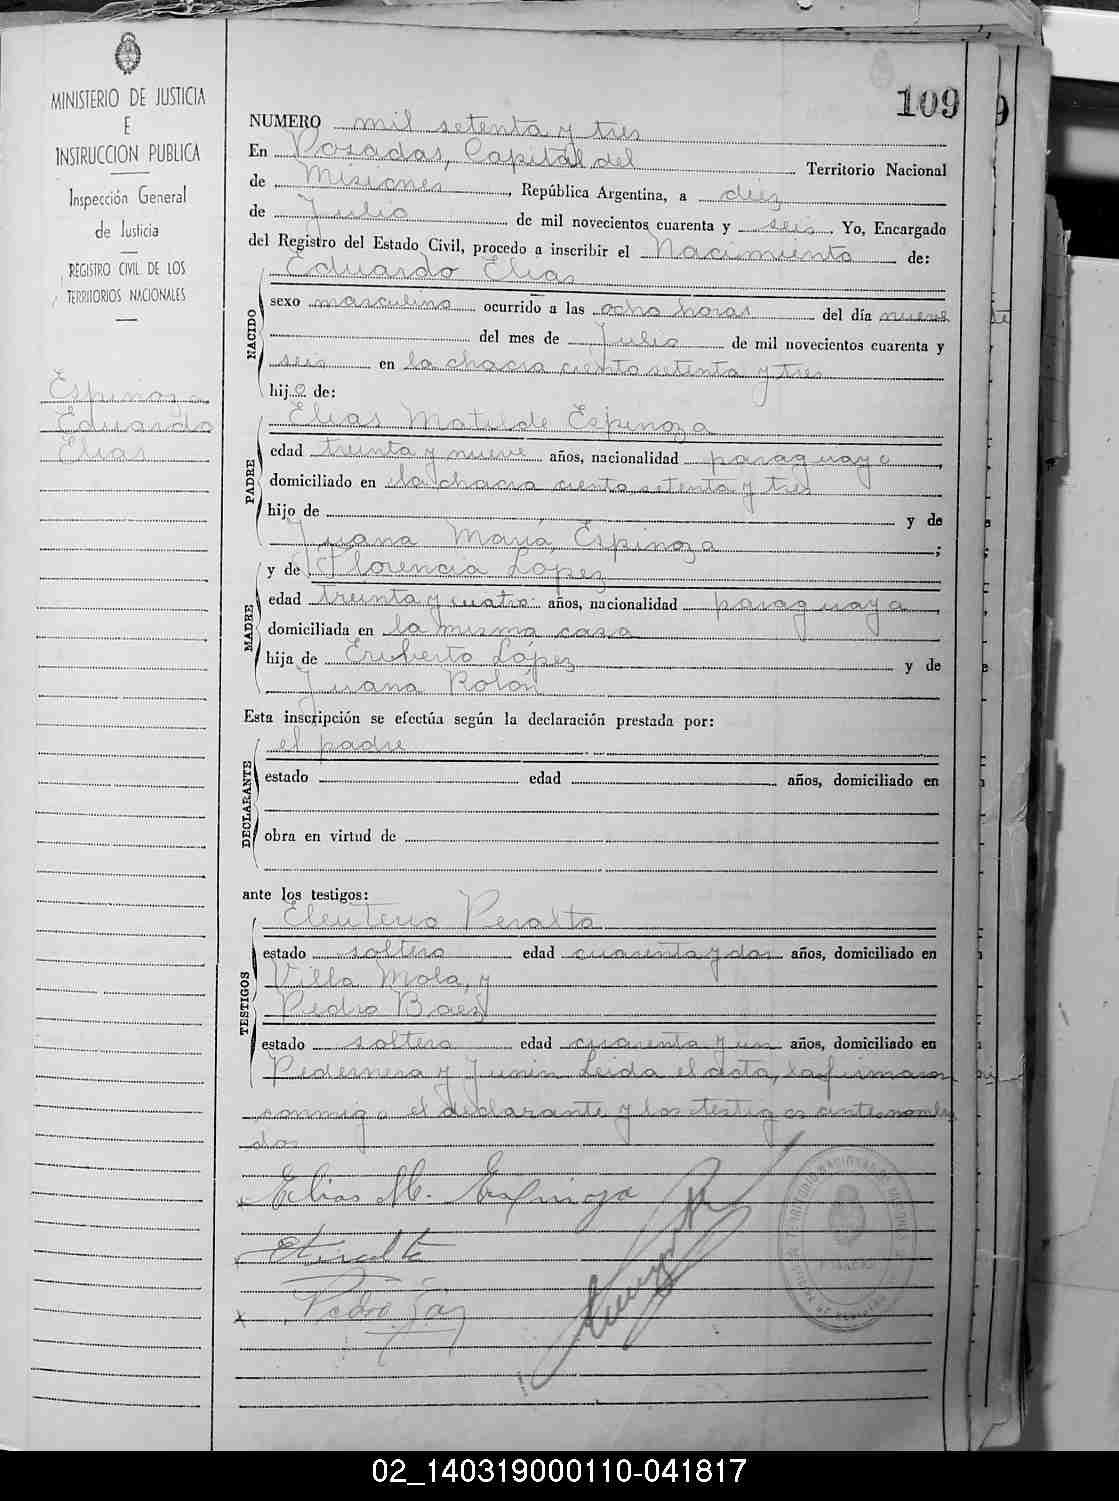 MINISTERIO DE JUSTICIA
E
INSTRUCCION PUBLICA
Inspección General
de Justicia
REGISTRO CIVIL DE LOS
TERRITORIOS NACIONALES
Espinoza
Eduardo
Elias
109
NUMERO mil setenta y tres
En Posadas, Capital del Territorio Nacional
de Misiones, República Argentina, a diez
de Julio de mil novecientos cuarenta y seis. Yo, Encargado
del Registro del Estado Civil, procedo a inscribir el Nacimiento de:
Eduardo Elias
NACIDO
sexo masculino ocurrido a las ocho horas del día nueve
del mes de Julio de mil novecientos cuarenta y
seis en la chacra ciento setenta y tres
hijo de:
Elias Matilde Espinoza
PADRE
edad treinta y nueve años, nacionalidad paraguayo,
domiciliado en la chacra ciento setenta y tres
hijo de y de
Juana María Espinoza;
y de Florencia López
MADRE
edad treinta y cuatro años, nacionalidad paraguaya,
domiciliada en la misma casa
hija de Eriberto López y de
Juana Rolón
Esta inscripción se efectúa según la declaración prestada por:
el padre
DECLARANTE
estado edad años, domiciliado en
obra en virtud de
ante los testigos:
Eleuterio Peralta
TESTIGOS
estado soltero edad cuarenta y dos años, domiciliado en
Villa Mola, y
Pedro Baez
estado soltero edad cuarenta y un años, domiciliado en
Pedernera y Junin Leida el acta, la firmaron
conmigo el declarante y los testigos antenombra
dos
Elias M. Espinoza
EPeralta
Pedro
02_140319000110-041817